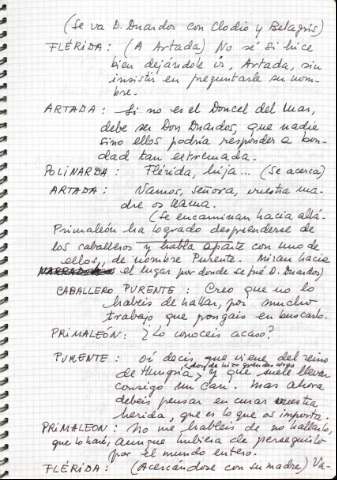 (Se va D. Duardos con Clodio y Belagrís)
FLÉRIDA: (A Artada) No sé si hice
bien dejándole ir, Artada, sin
insistir en preguntarle su nom-
bre.
ARTADA: Si no es el Doncel del Mar,
debe ser Don Duardos, que nadie
sino ellos podría responder a bon-
dad tan extremada.
POLINARDA: Flérida, hija... (Se acerca)
ARTADA: Vamos, señora, vuestra ma-
dre os llama.
(Se encaminan hacia allá.
Primaleón ha logrado desprenderse de
los caballeros y habla aparte con uno de
ellos, de nombre Purente. Miran hacia
el lugar por donde se fué D. Duardos)
CABALLERO PURENTE: Creo que no lo
habéis de hallar, por mucho
trabajo que pongáis en buscarlo.
PRIMALEÓN: ¿Lo conocéis acaso?
PURENTE: Oí decir que viene del reino
de Hungría, y que suele llevar
consigo un can. Mas ahora
debéis pensar en curar vuestra
herida, que es lo que os importa.
PRIMALEÓN: No me habléis de no hallarlo,
que lo haré, aunque hubiera de perseguirlo
por el mundo entero.
FLÉRIDA: (Acercándose con su madre) Va-